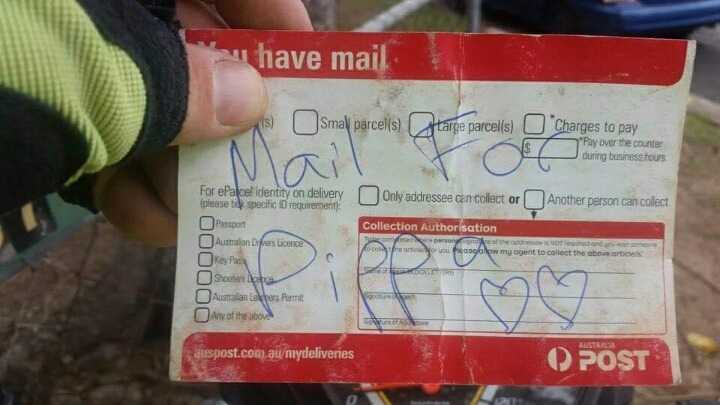 You have mail
(s) Small parcel(s) Large parcel(s) *Charges to pay
$ *Pay over the counter during business hours
Mail For
For eParcel identity on delivery
(please tick specific ID requirement):
Only addressee can collect or Another person can collect
Passport
Australian Drivers Licence
Key Pass
Shooters Licence
Australian Learners Permit
Any of the above
Collection Authorisation
Please allow my agent to collect the above article/s:
Pippa
auspost.com.au/mydeliveries
AUSTRALIA
POST